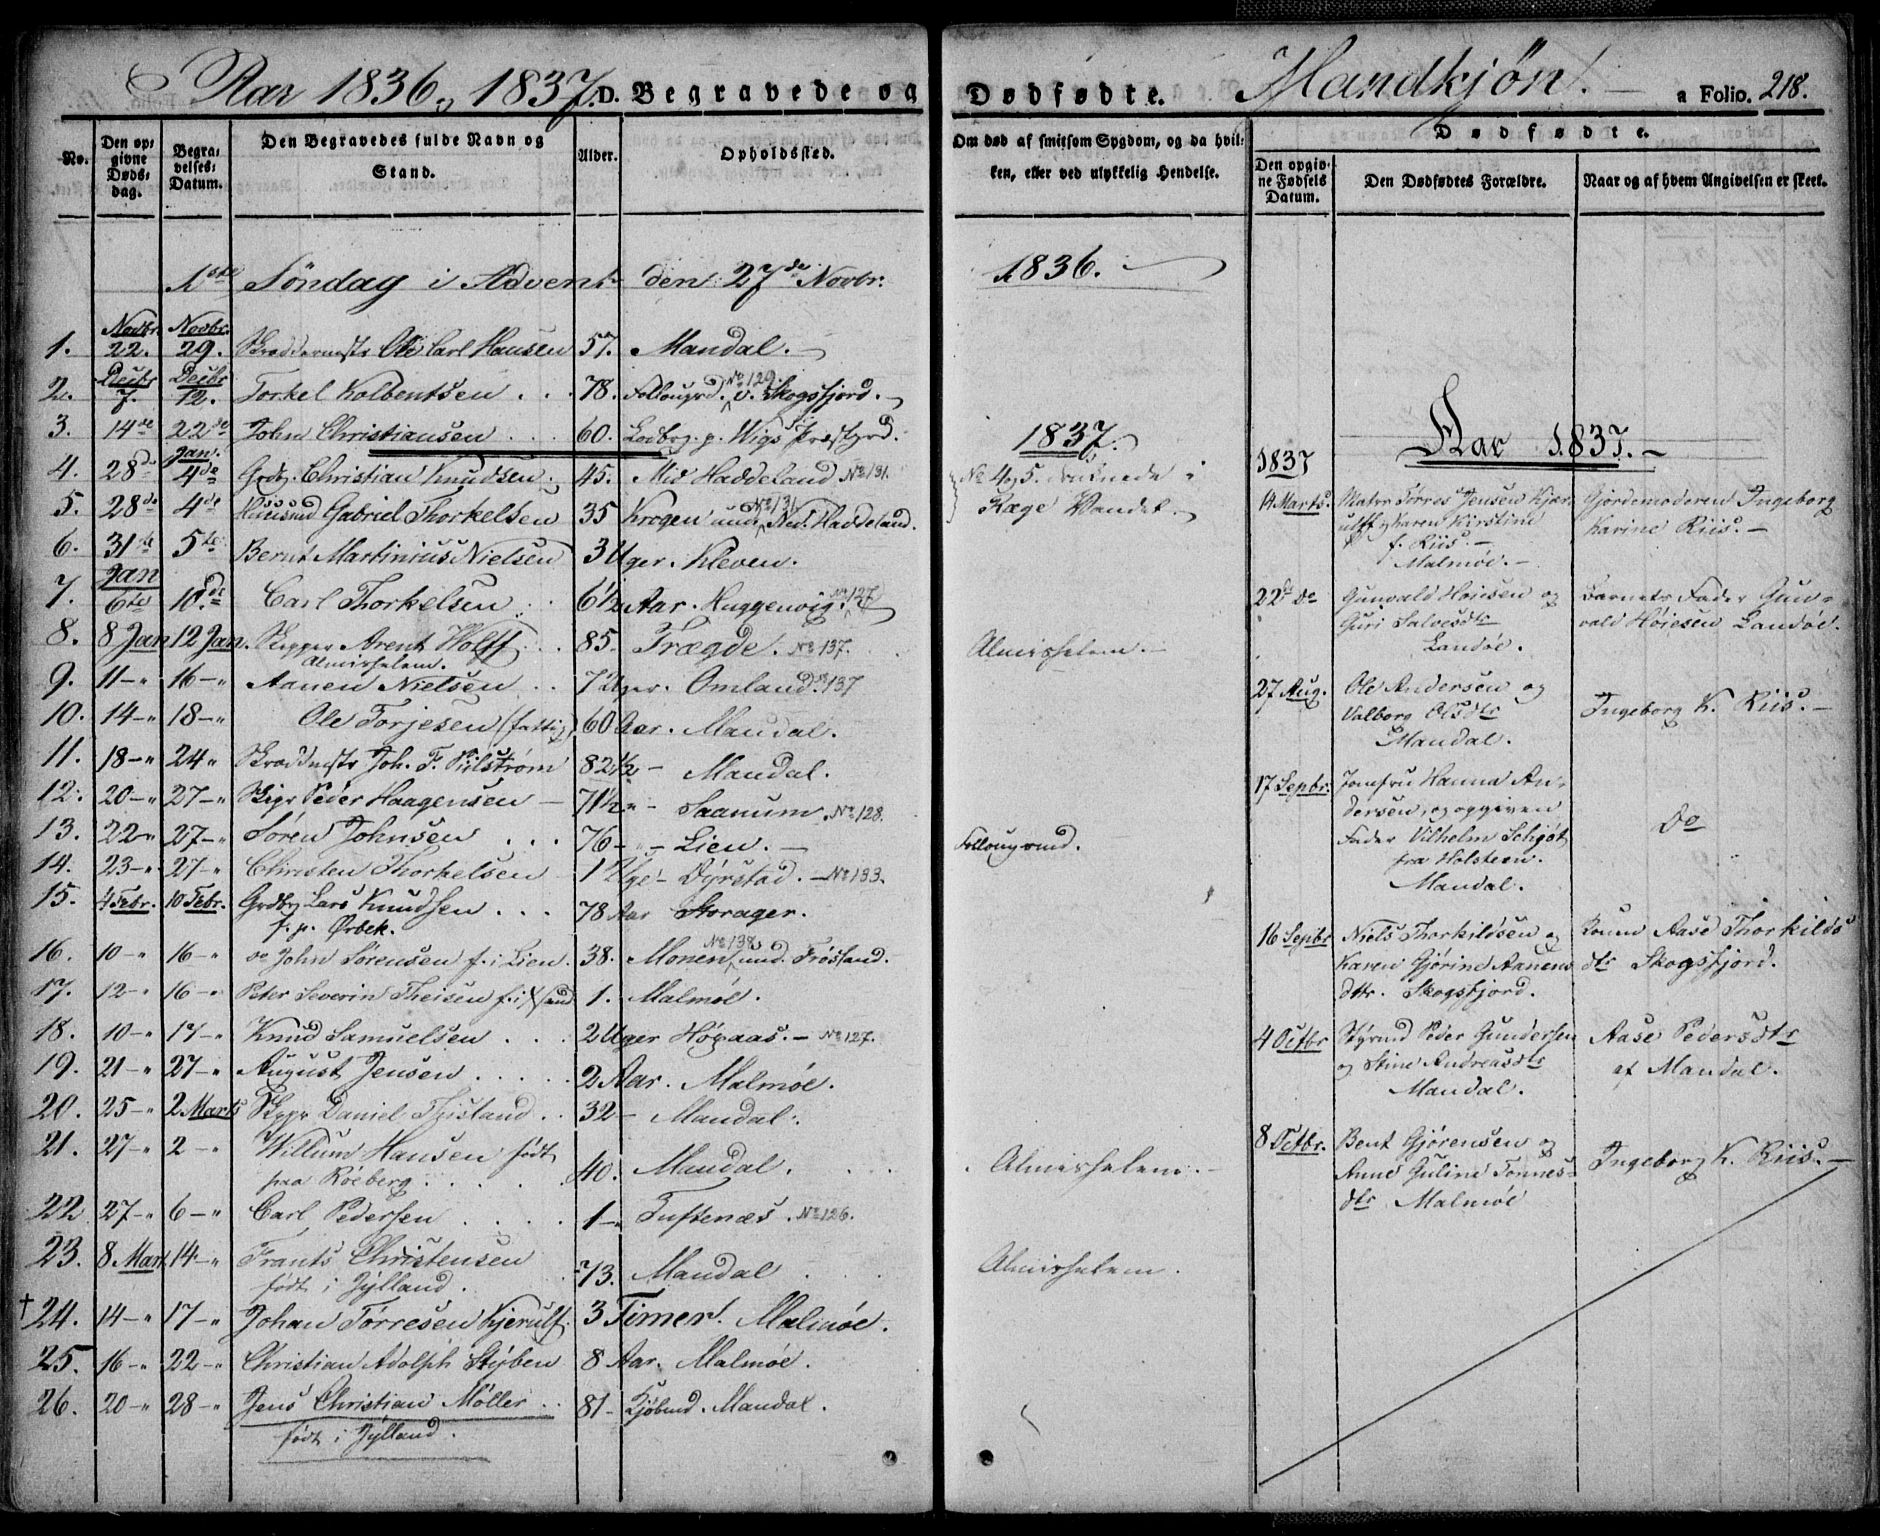 Aar 1836 & 1837. D. Begravede og Dødfødte. Mandkjøn. a Folio. 218.
No.
Den opgivne Døds-dag.
Begravelses-Datum.
Den Begravedes fulde Navn og Stand.
Alder.
Opholdssted.
Om død af smitsom Sygdom, og da hvilken, eller ved ulykkelig Hendelse.
Dødfødte.
Den opgivne Fødsels Datum.
Den Dødfødtes Forældre.
Naar og af hvem Angivelsen er skeet.
1ste Søndag i Advent den 27de Novbr. 1836.
Novbr. Novbr.
1. 22. 29. Skreddermstr Ole Carl Hansen 57. Mandal.
Decbr Decbr
2. 7. 12. Torkel Kolbentsen 78. Follougrd. No 129. v. Skogsfjord.
3. 14de 22de John Christiansen 60. Ladbrg. p. Wigs Præstgrd.
1837.
Jan.
4. 28de 4de Grdbr. Christian Knudsen 45. Mid Haddeland No 131. No 4 og 5. druknede i
5. 28de 4de Huusmd Gabriel Thorkelsen 35 Krogen und No 131 Ned. Haddeland. Kæge Vandet.
6. 31te 5te Bernt Martinius Nielsen 3 Uger. Kleven.
Jan
7. 6te 10de Carl Thorkelsen 6½ Aar. Huggenvig. No 127
8. 8 Jan 12 Jan. Skipper Arent Wolff 85. Trægde. No 137. Almisselem.
Almisselem.
9. 11-" 16-" Aanen Nielsen 7 Uger. Omland. No 137
10. 14-" 18-" Ole Torjesen (fattig) 60 Aar. Mandal.
11. 18-" 24" Skreddmstr Joh. F. Pilstrøm 82½ - Mandal.
12. 20-" 27-" Skipr Peder Haagensen 71½ " - Saanum. No 128.
13. 22-" 27-" Søren Johnsen 76-"- Lien. Follougmand.
14. 23-" 27-" Christen Thorkelsen 1 Uge - Dyrstad. No 133.
15. 4 Febr. 10 Febr. Grdbr Lars Knudsen 78 Aar Storager.
f. p. Ørbek.
16. 10-" 16-" do John Sørensen f. i Lien. 38. Monen No 138 und. Frøsland.
17. 12-" 16-" Peter Severin Theisen f. i Xsand 1. Malmøe.
18. 10-" 17-" Knud Samuelsen 2 Uger Høgaas. No 127.
19. 21-" 27-" August Jensen 2 Aar. Malmøe.
20. 25-" 2 Marts Skippr Daniel Tjisland 32 - Mandal.
21. 27-" 2-" Willum Hansen født 40. Mandal. Almisselem.
paa Røeberg
22 27-" 6-" Carl Pedersen 1-" Tuftenæs. No 126.
23. 8 Mart 14-" Frants Christensen 73. Mandal Almisselem.
født i Jylland.
† 24. 14-" 17-" Johan Tørresen Kjerulf. 3 Timer. Malmøe.
25. 16-" 22-" Christian Adolph Styben 8 Aar. Malmøe.
26. 20-" 28-" Jens Christian Møller 81 - Kjøbmd. Mandal.
født i Jylland.
Aar 1837.
1837
14 Marts. Matrs Tørres Jensen Kjær- Gjordemoderen Ingeborg
ulff og Karen Kirstine Karine Riis.
f. Riis.
Malmøe.
22de do Gunvald Høiesen og Barnets Fader Gun-
Guri Salvesdtr vald Høiesen Landøe.
Landøe.
27 Aug. Ole Andersen og
Valborg Olsdtr Ingeborg K. Riis.
Mandal.
17 Septbr. Jomfru Hanna An-
dersen, og opgiven do
Fader Vilhelm Schjøt
fra Holsteen.
Mandal.
16 Septbr Niels Thorkildsen og Konen Aase Thorkilds
Karen Gjørine Aanens dtr Skogsfjord.
dttr. Skogsfjord.
4 Octbr Styrmd Peder Gundersen Aase Pedersdtr
og Stine Andreasdtr af Mandal.
Mandal.
8 Octbr. Bent Gjørensen og
Anne Guline Tønnes- Ingeborg K. Riis.
dtr Malmøe